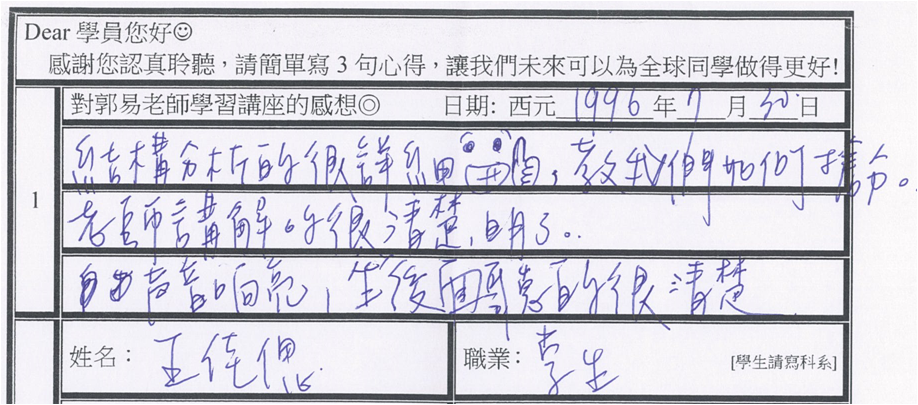 Dear 學員您好☺
感謝您認真聆聽，請簡單寫3句心得，讓我們未來可以為全球同學做得更好!
1
對郭易老師學習講座的感想◎ 日期: 西元 1996 年 7 月 30 日
結構分析的很詳細，教我們如何搶分。
老師講解的很清楚，明了..
聲音响亮，坐後面聽的很清楚
姓名： 王佳偲 職業： 學生 [學生請寫科系]